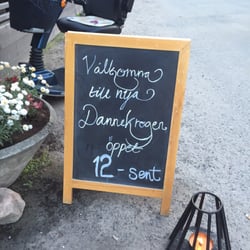 Välkomna
till nya
Dannekrogen
öppet
12 - sent